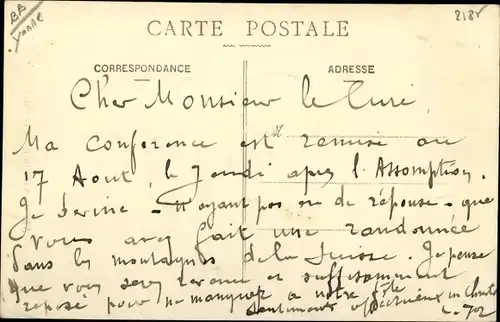 BB
2182
CARTE POSTALE
CORRESPONDANCE
ADRESSE
Cher Monsieur le Curé,
Ma conférence est remise au
17 Aout, le jeudi après l'Assomption.
Je devine - n'ayant pas eu de réponse - que
vous avez fait une randonnée
dans les montagnes de la Suisse. Je pense
que vous serez revenu et suffisamment
reposé pour ne manquer a notre fête
Sentiments affectueux in Christo